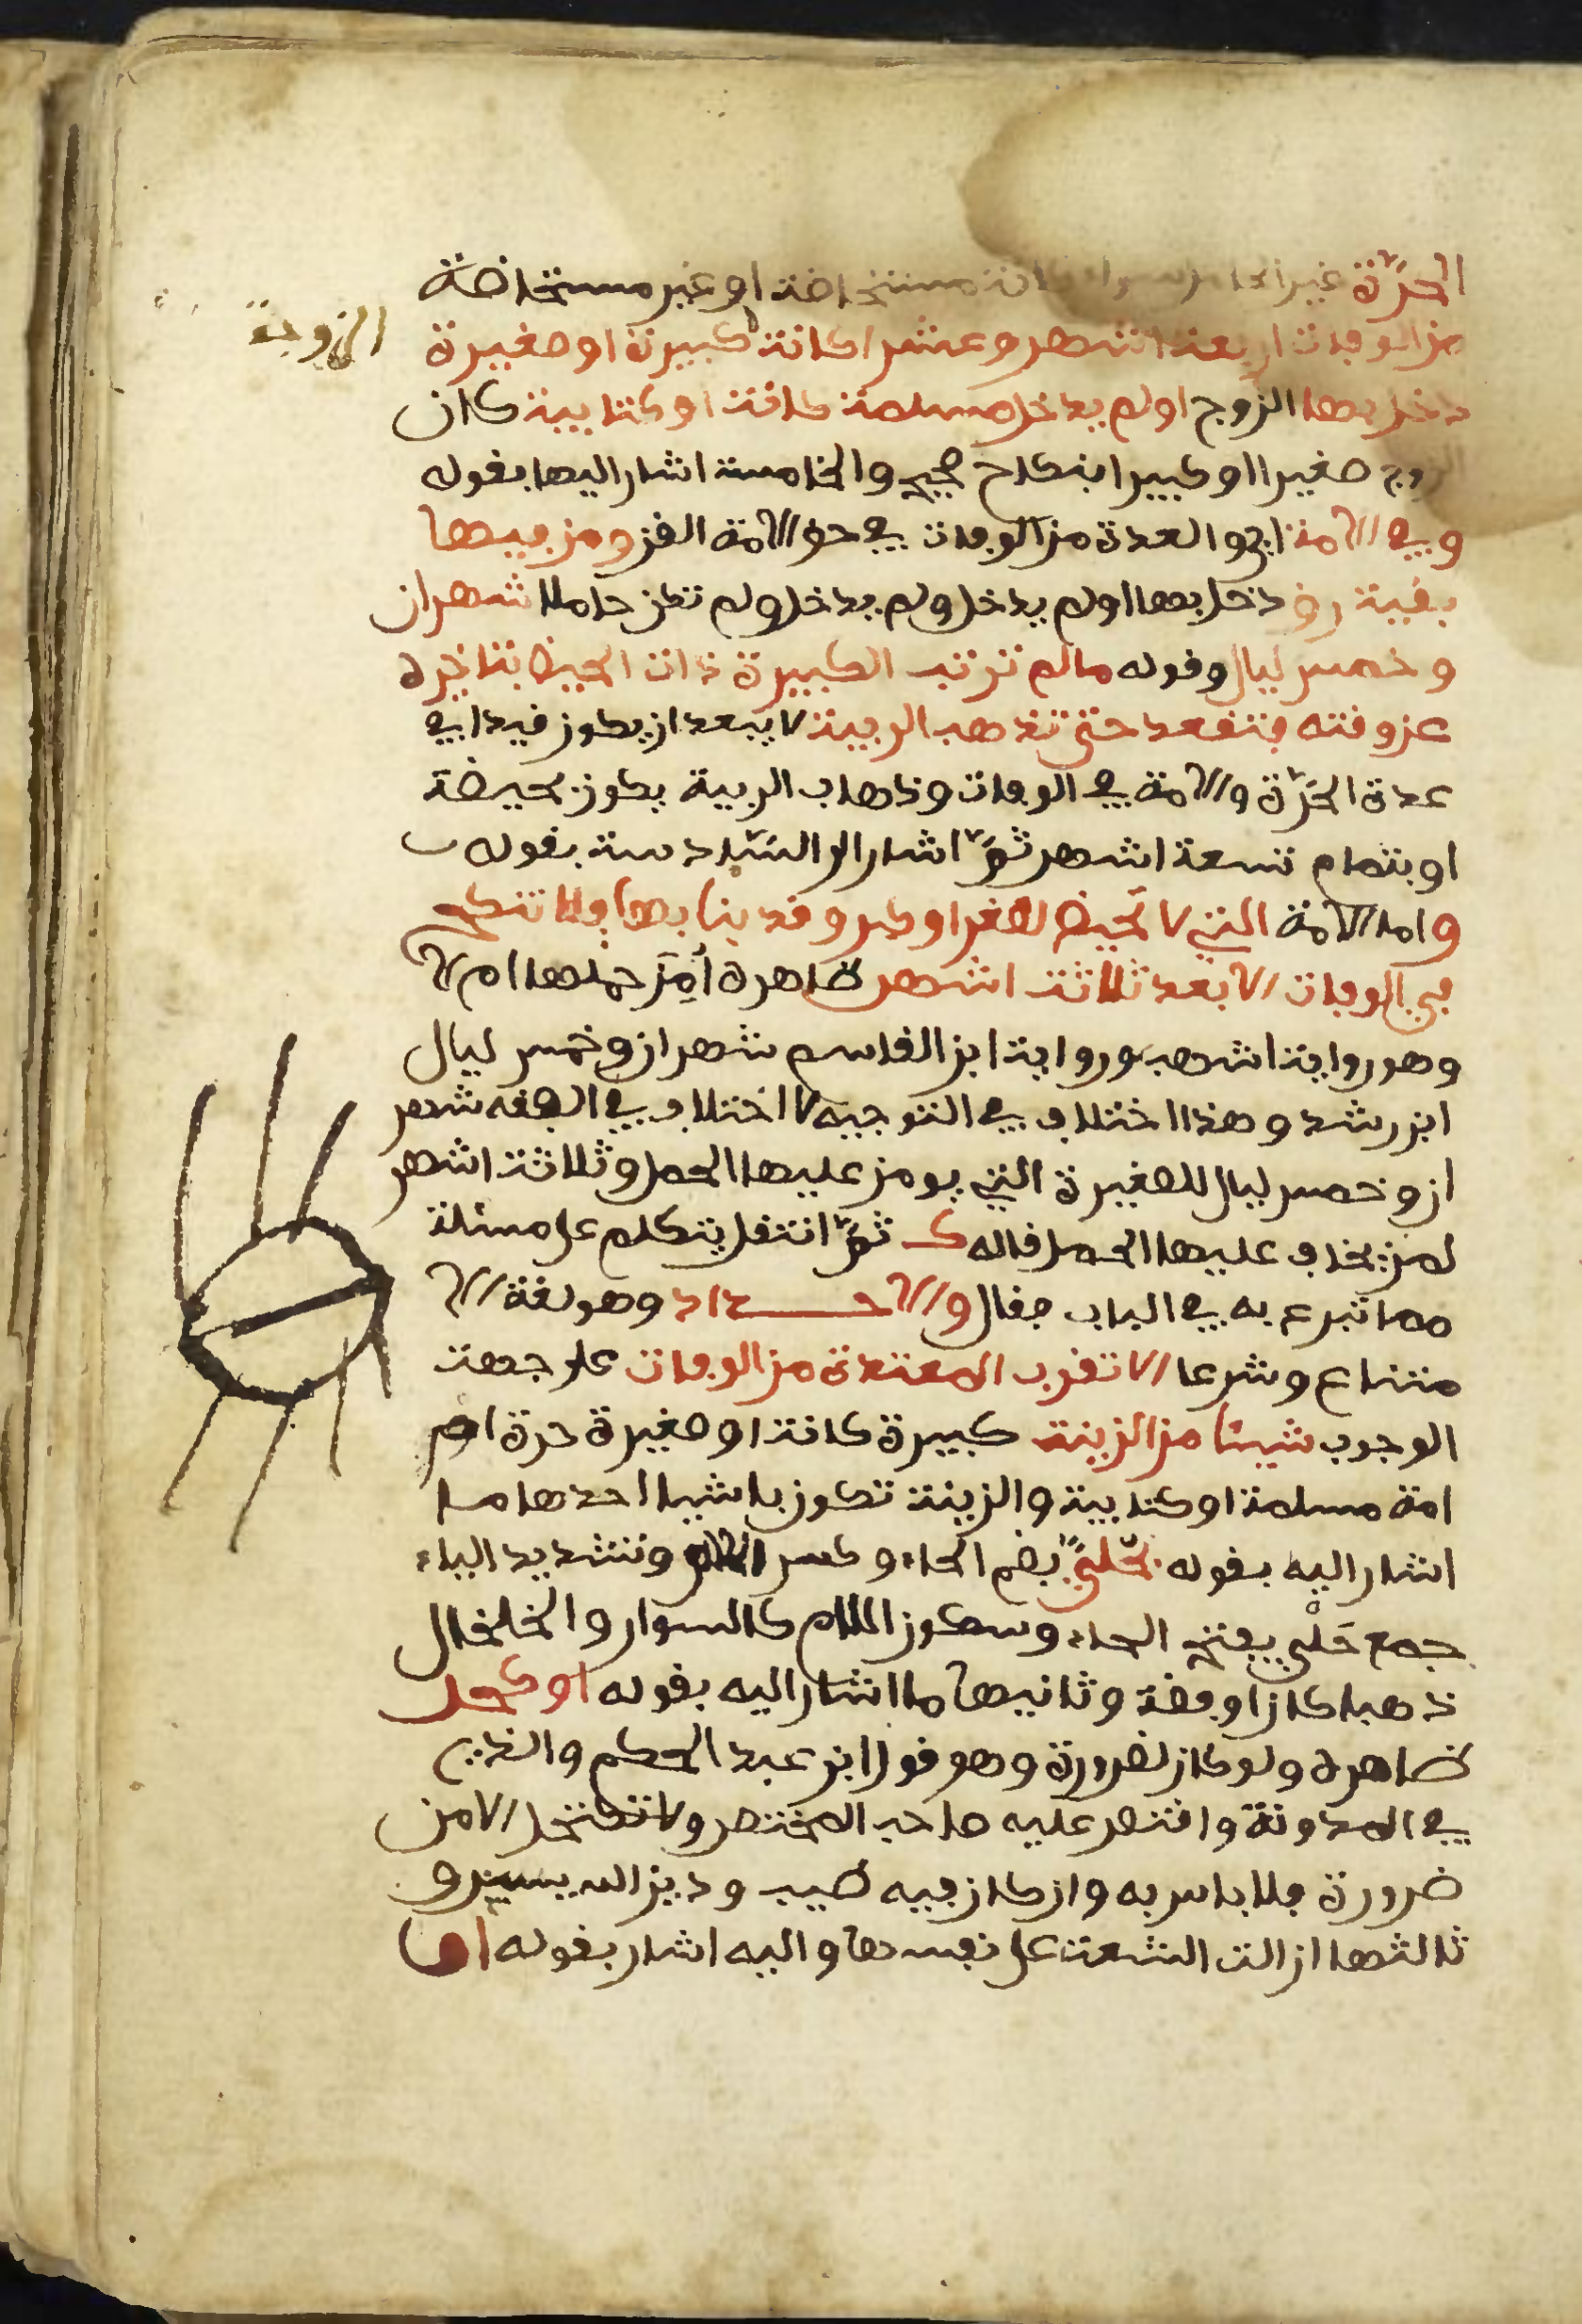 الحرّة غير الحامل سواء كانت مستحاضة او غير مستحاضة
من الوفات اربعة اشهر وعشرا كانت كبيرة او صغيرة
الزوجة
دخل بها الزوج اولم يدخل مسلمة كانت او كتابية كان
الزوج صغيرا او كبيرا بنكاح صحيح والخامسة اشار اليها بقوله
وفي الامة اي والعدة من الوفات في حق الامة القن ومن فيها
بقية رق دخل بها اولم يدخل ولم يدخل ولم تكن حاملا شهران
وخمس ليال وقوله مالم ترتب الكبيرة ذات الحيض بتاخيره
عن وقته فتقعد حتى تذهب الريبة لا يبعد ان يكون قيدا في
عدة الحرّة والامة في الوفات وذهاب الريبة يكون بحيضة
او بتمام تسعة اشهر ثمّ اشار الى السّادسة بقوله
واما الامة التي لا تحيض لصغر او كبر وقد بنا بها فلا تنكح
في الوفات الا بعد ثلاثة اشهر ظاهره أمِنَ حملها ام لا
وهو رواية اشهب ورواية ابن القاسم شهران وخمس ليال
ابن رشد وهذا اختلاف في التوجيه لا اختلاف في الفقه شهر
ان وخمس ليال للصغيرة التي يومن عليها الحمل وثلاثة اشهر
لمن يخاف عليها الحمل قاله ك ثمّ انتقل يتكلم على مسئلة
مما تبرع به في الباب فقال والاحــداد وهو لغة الا
متناع وشرعا الا تقرب المعتدة من الوفات على جهت
الوجوب شيئا من الزينة كبيرة كانت او صغيرة حرة ام
امة مسلمة او كتابية والزينة تكون باشيا احدها ما
اشار اليه بقوله بحُليّ بضم الحاء وكسر اللام وتشديد الياء
جمع حَلْي بفتح الحاء وسكون اللام كالسوار والخلخال
ذهبا كان او فضة وثانيها ما اشار اليه بقوله او كحل
ظاهره ولو كان لضرورة وهو قول ابن عبد الحكم والذي
في المدونة واقتصر عليه صاحب المختصر ولا تكتحل الا من
ضرورة فلا باس به وان كان فيه طيب ودين الله يسير و
ثالثها ازالت الشعث على نفسها واليه اشار بقوله او